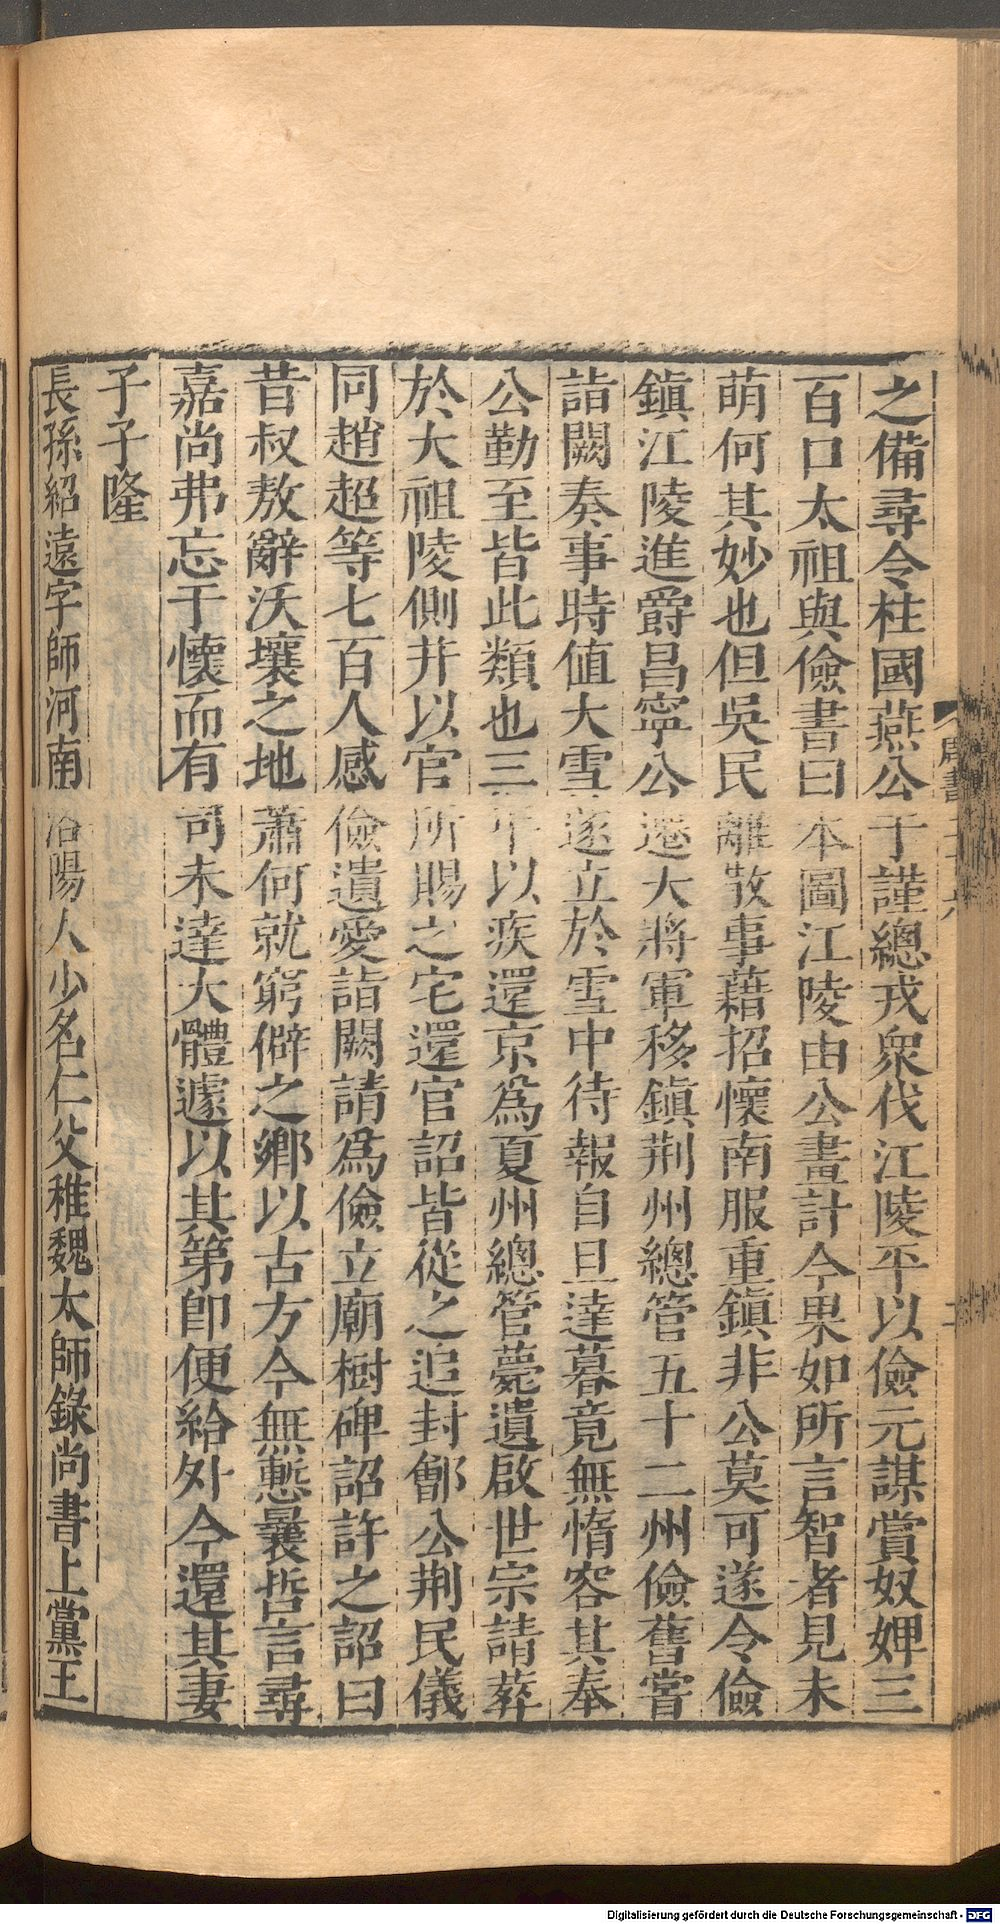 之備尋令柱國燕公于謹總戎衆伐江陵平以儉元謀賞奴婢三
百口太祖與儉書曰本圖江陵由公畫計今果如所言智者見未
萌何其妙也但吳民離散事藉招懷南服重鎮非公莫可遂令儉
鎮江陵進爵昌寧公遷大將軍移鎮荆州總管五十二州儉舊嘗
詣闕奏事時值大雪遂立於雪中待報自旦達暮竟無惰容其奉
公勤至皆此類也三年以疾還京爲夏州總管薨遺啟世宗請葬
於大祖陵側并以官所賜之宅還官詔皆從之追封鄶公荆民儀
同趙超等七百人感儉遺愛詣闕請爲儉立廟樹碑詔許之詔曰
昔叔敖辭沃壤之地蕭何就窮僻之鄉以古方今無慙曩哲言尋
嘉尚弗忘于懷而有司未達大體遽以其第即便給外今還其妻
子子隆
長孫紹遠字師河南洛陽人少名仁父稚魏太師錄尚書上黨王
周書二十六
Digitalisierung gefördert durch die Deutsche Forschungsgemeinschaft - DFG